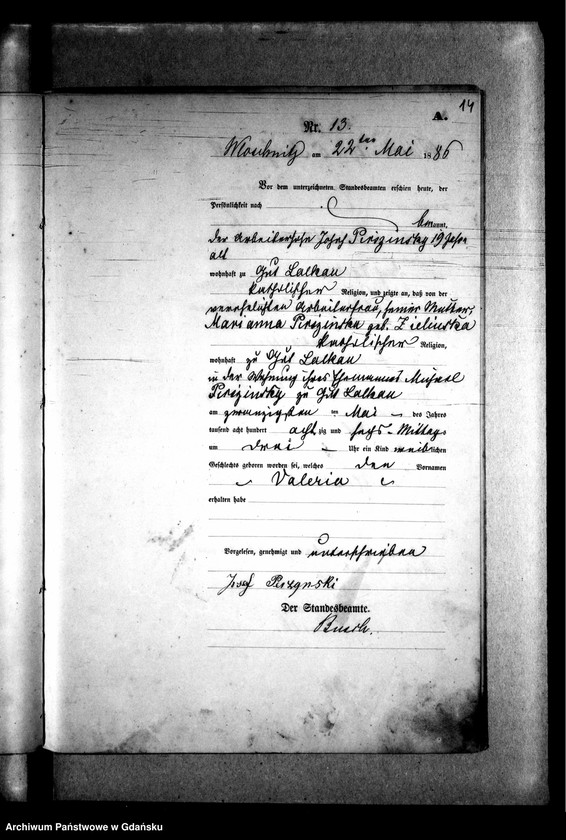 14
A.
Nr. 13.
am 22ten Mai 1886
Vor dem unterzeichneten Standesbeamten erschien heute, der
Persönlichkeit nach
kannt,
der Arbeitersohn Josef Pirozinsky 19 Jahre
alt
wohnhaft zu Gut Lalkau
katholischer Religion, und zeigte an, daß von der
verehelichten Arbeiterfrau, seiner Mutter,
Marianna Pirozinska geb. Zielinska
katholischer Religion,
wohnhaft zu Gut Lalkau
in der Wohnung ihres Ehemannes Michael
Pirozinsky zu Gut Lalkau
am zwanzigsten ten Mai des Jahres
tausend acht hundert acht zig und sechs Mittag
um drei Uhr ein Kind weiblichen
Geschlechts geboren worden sei, welches den Vornamen
Valeria
erhalten habe
Vorgelesen, genehmigt und unterschrieben
Josef
Der Standesbeamte.
Busch.
Archiwum Państwowe w Gdańsku